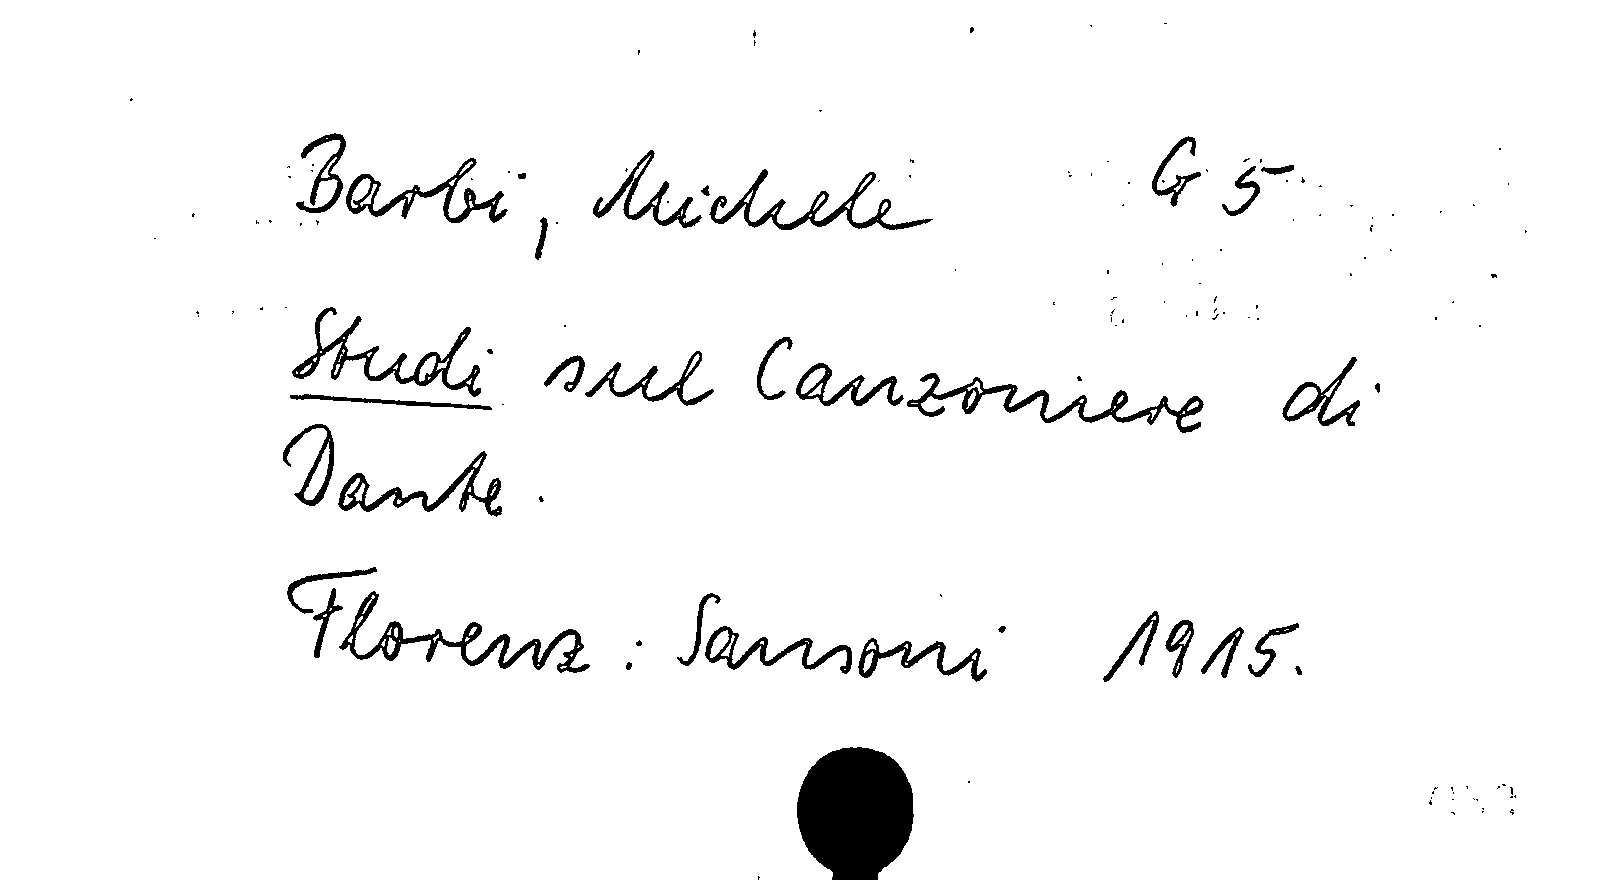 Barbi, Michele G 5
Studi sul Canzoniere di
Dante.
Florenz: Sansoni 1915.